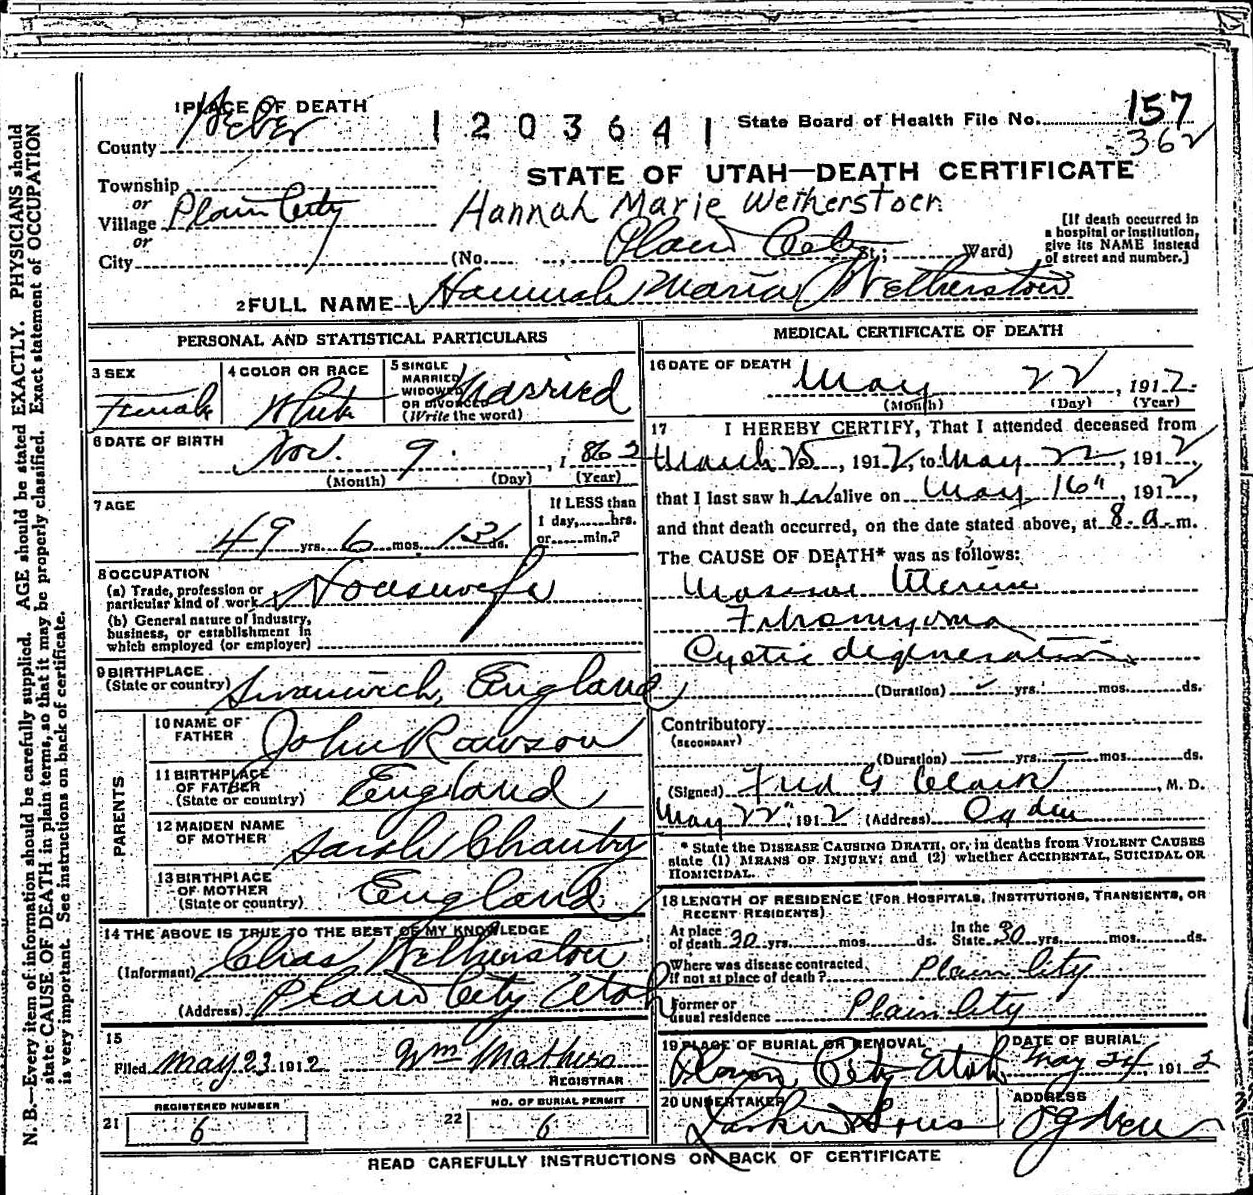 1 PLACE OF DEATH
County Weber
1 2 0 3 6 4 1
State Board of Health File No. 157
362
STATE OF UTAH—DEATH CERTIFICATE
Township
or
Village Plain City
or
City
Hannah Marie Wetherstoen
(No. , Plain City St.; Ward)
[If death occurred in a hospital or institution, give its NAME instead of street and number.]
2 FULL NAME Hannah Maria Wetherston
PERSONAL AND STATISTICAL PARTICULARS
3 SEX
Female
4 COLOR OR RACE
White
5 SINGLE MARRIED WIDOWED OR DIVORCED (Write the word)
Married
6 DATE OF BIRTH
Nov. 9. , 1862
(Month) (Day) (Year)
7 AGE
49 yrs. 6 mos. 13 ds.
If LESS than 1 day, hrs. or min.?
8 OCCUPATION
(a) Trade, profession or particular kind of work Housewife
(b) General nature of industry, business, or establishment in which employed (or employer)
9 BIRTHPLACE
(State or country) Swanwich, England
PARENTS
10 NAME OF FATHER John Rawson
11 BIRTHPLACE OF FATHER (State or country) England
12 MAIDEN NAME OF MOTHER Sarah Chantry
13 BIRTHPLACE OF MOTHER (State or country) England
14 THE ABOVE IS TRUE TO THE BEST OF MY KNOWLEDGE
(Informant) Chas Wetherston
(Address) Plain City Utah
15
Filed May 23 1912 Wm Mathiso
REGISTRAR
REGISTERED NUMBER
21 6
NO. OF BURIAL PERMIT
22 6
MEDICAL CERTIFICATE OF DEATH
16 DATE OF DEATH
May 22, 1912.
(Month) (Day) (Year)
17 I HEREBY CERTIFY, That I attended deceased from
March 25, 1912, to May 22, 1912,
that I last saw her alive on May 16", 1912,
and that death occurred, on the date stated above, at 8-a-m.
The CAUSE OF DEATH* was as follows:
Massive Uterine
Fibromyoma
Cystic degeneration
(Duration) yrs. mos. ds.
Contributory
(SECONDARY)
(Duration) yrs. mos. ds.
(Signed) Fred G Clark, M. D.
May 22", 1912 (Address) Ogden
* State the DISEASE CAUSING DEATH, or, in deaths from VIOLENT CAUSES
state (1) MEANS OF INJURY; and (2) whether ACCIDENTAL, SUICIDAL OR
HOMICIDAL.
18 LENGTH OF RESIDENCE (FOR HOSPITALS, INSTITUTIONS, TRANSIENTS, OR
RECENT RESIDENTS)
At place of death 30 yrs. mos. ds. In the State 30 yrs. mos. ds.
Where was disease contracted, if not at place of death? Plain City
Former or usual residence Plain City
19 PLACE OF BURIAL OR REMOVAL
Plain City Utah
DATE OF BURIAL
May 24 1912
20 UNDERTAKER
Larkin & Sons
ADDRESS
Ogden
READ CAREFULLY INSTRUCTIONS ON BACK OF CERTIFICATE
N. B.—Every item of information should be carefully supplied. AGE should be stated EXACTLY. PHYSICIANS should
state CAUSE OF DEATH in plain terms, so that it may be properly classified. Exact statement of OCCUPATION
is very important. See instructions on back of certificate.